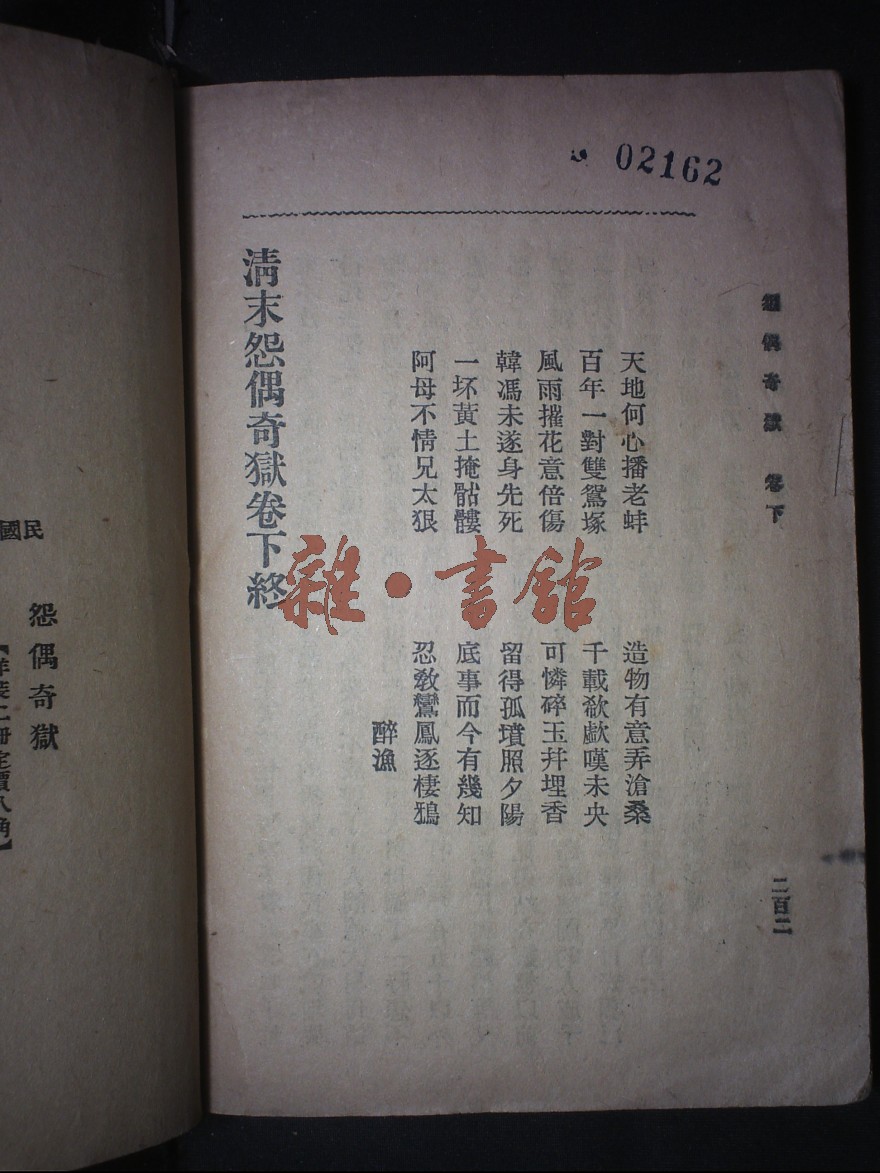 02162
怨偶奇獄 卷下
天地何心播老蚌 造物有意弄滄桑
百年一對雙鴛塚 千載欷歔嘆未央
風雨摧花意倍傷 可憐碎玉幷埋香
韓馮未遂身先死 留得孤墳照夕陽
一坏黃土掩骷髏 底事而今有幾知
阿母不情兄太狠 忍教鸞鳳逐棲鴉
醉漁
清末怨偶奇獄卷下終
二百二
雜·書館
民國
怨偶奇獄
【洋裝二冊定價八角】